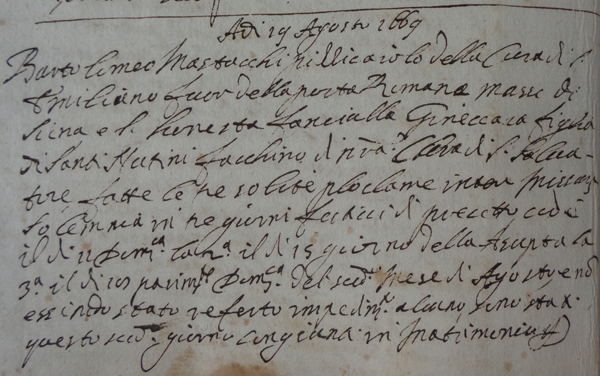 Adi 19 Agosto 1669
Bartolomeo Mastacchi pillicaiolo della Cura di S.
Emiliano fuor della porta Romana masse di
Siena e l'honesta fanciulla Gineuara figlia
di Santi Nutini facchino di nra Cura di S. Salua
tore, fatte le tre solite ploclame inter missar
solemnia in tre giorni festiui di precetto cioè
il di 11 Domca la 2a il di 15 giorno della Asupta la
3a il di 18 parimte Domca del sudo Mese di Agosto, e nō
essendo stato referto impedimto alcuno sino sta a
questo sudo giorno congiunti in Matrimonio